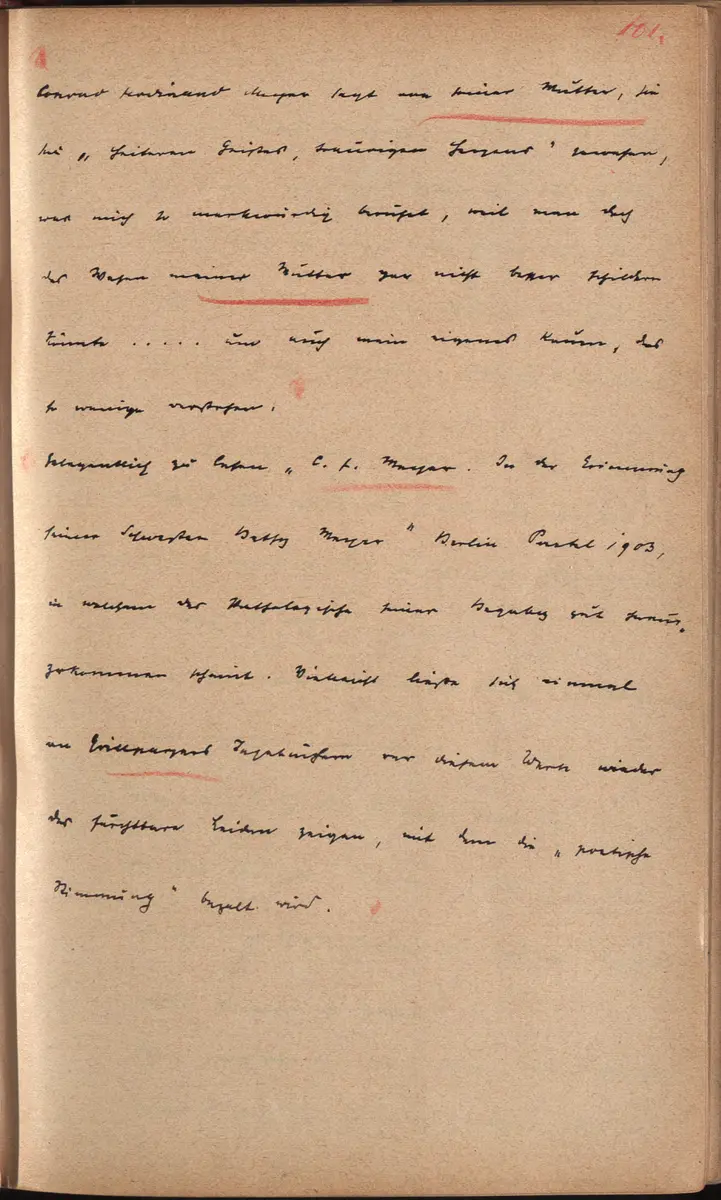 101.
Conrad Ferdinand Meyer sagt von seiner Mutter, sie
sei „ heiteren Geistes, traurigen Herzens " gewesen,
was mich so merkwürdig berührt, weil man doch
das Wesen meiner Mutter gar nicht besser schildern
könnte ..... und auch mein eigenes, das
so wenige verstehen.
Gelegentlich zu lesen „ C. F. Meyer. In der Erinnerung
seiner Schwester Betsy Meyer " Berlin Paetel 1903,
in welchem das Pathologische seiner gut heraus-
zukommen scheint. Vielleicht ließe sich einmal
an Grillparzers Tagebüchern vor diesem Werk wieder
das furchtbare Leiden zeigen, mit dem die „ poetische
Stimmung " bezalt wird.